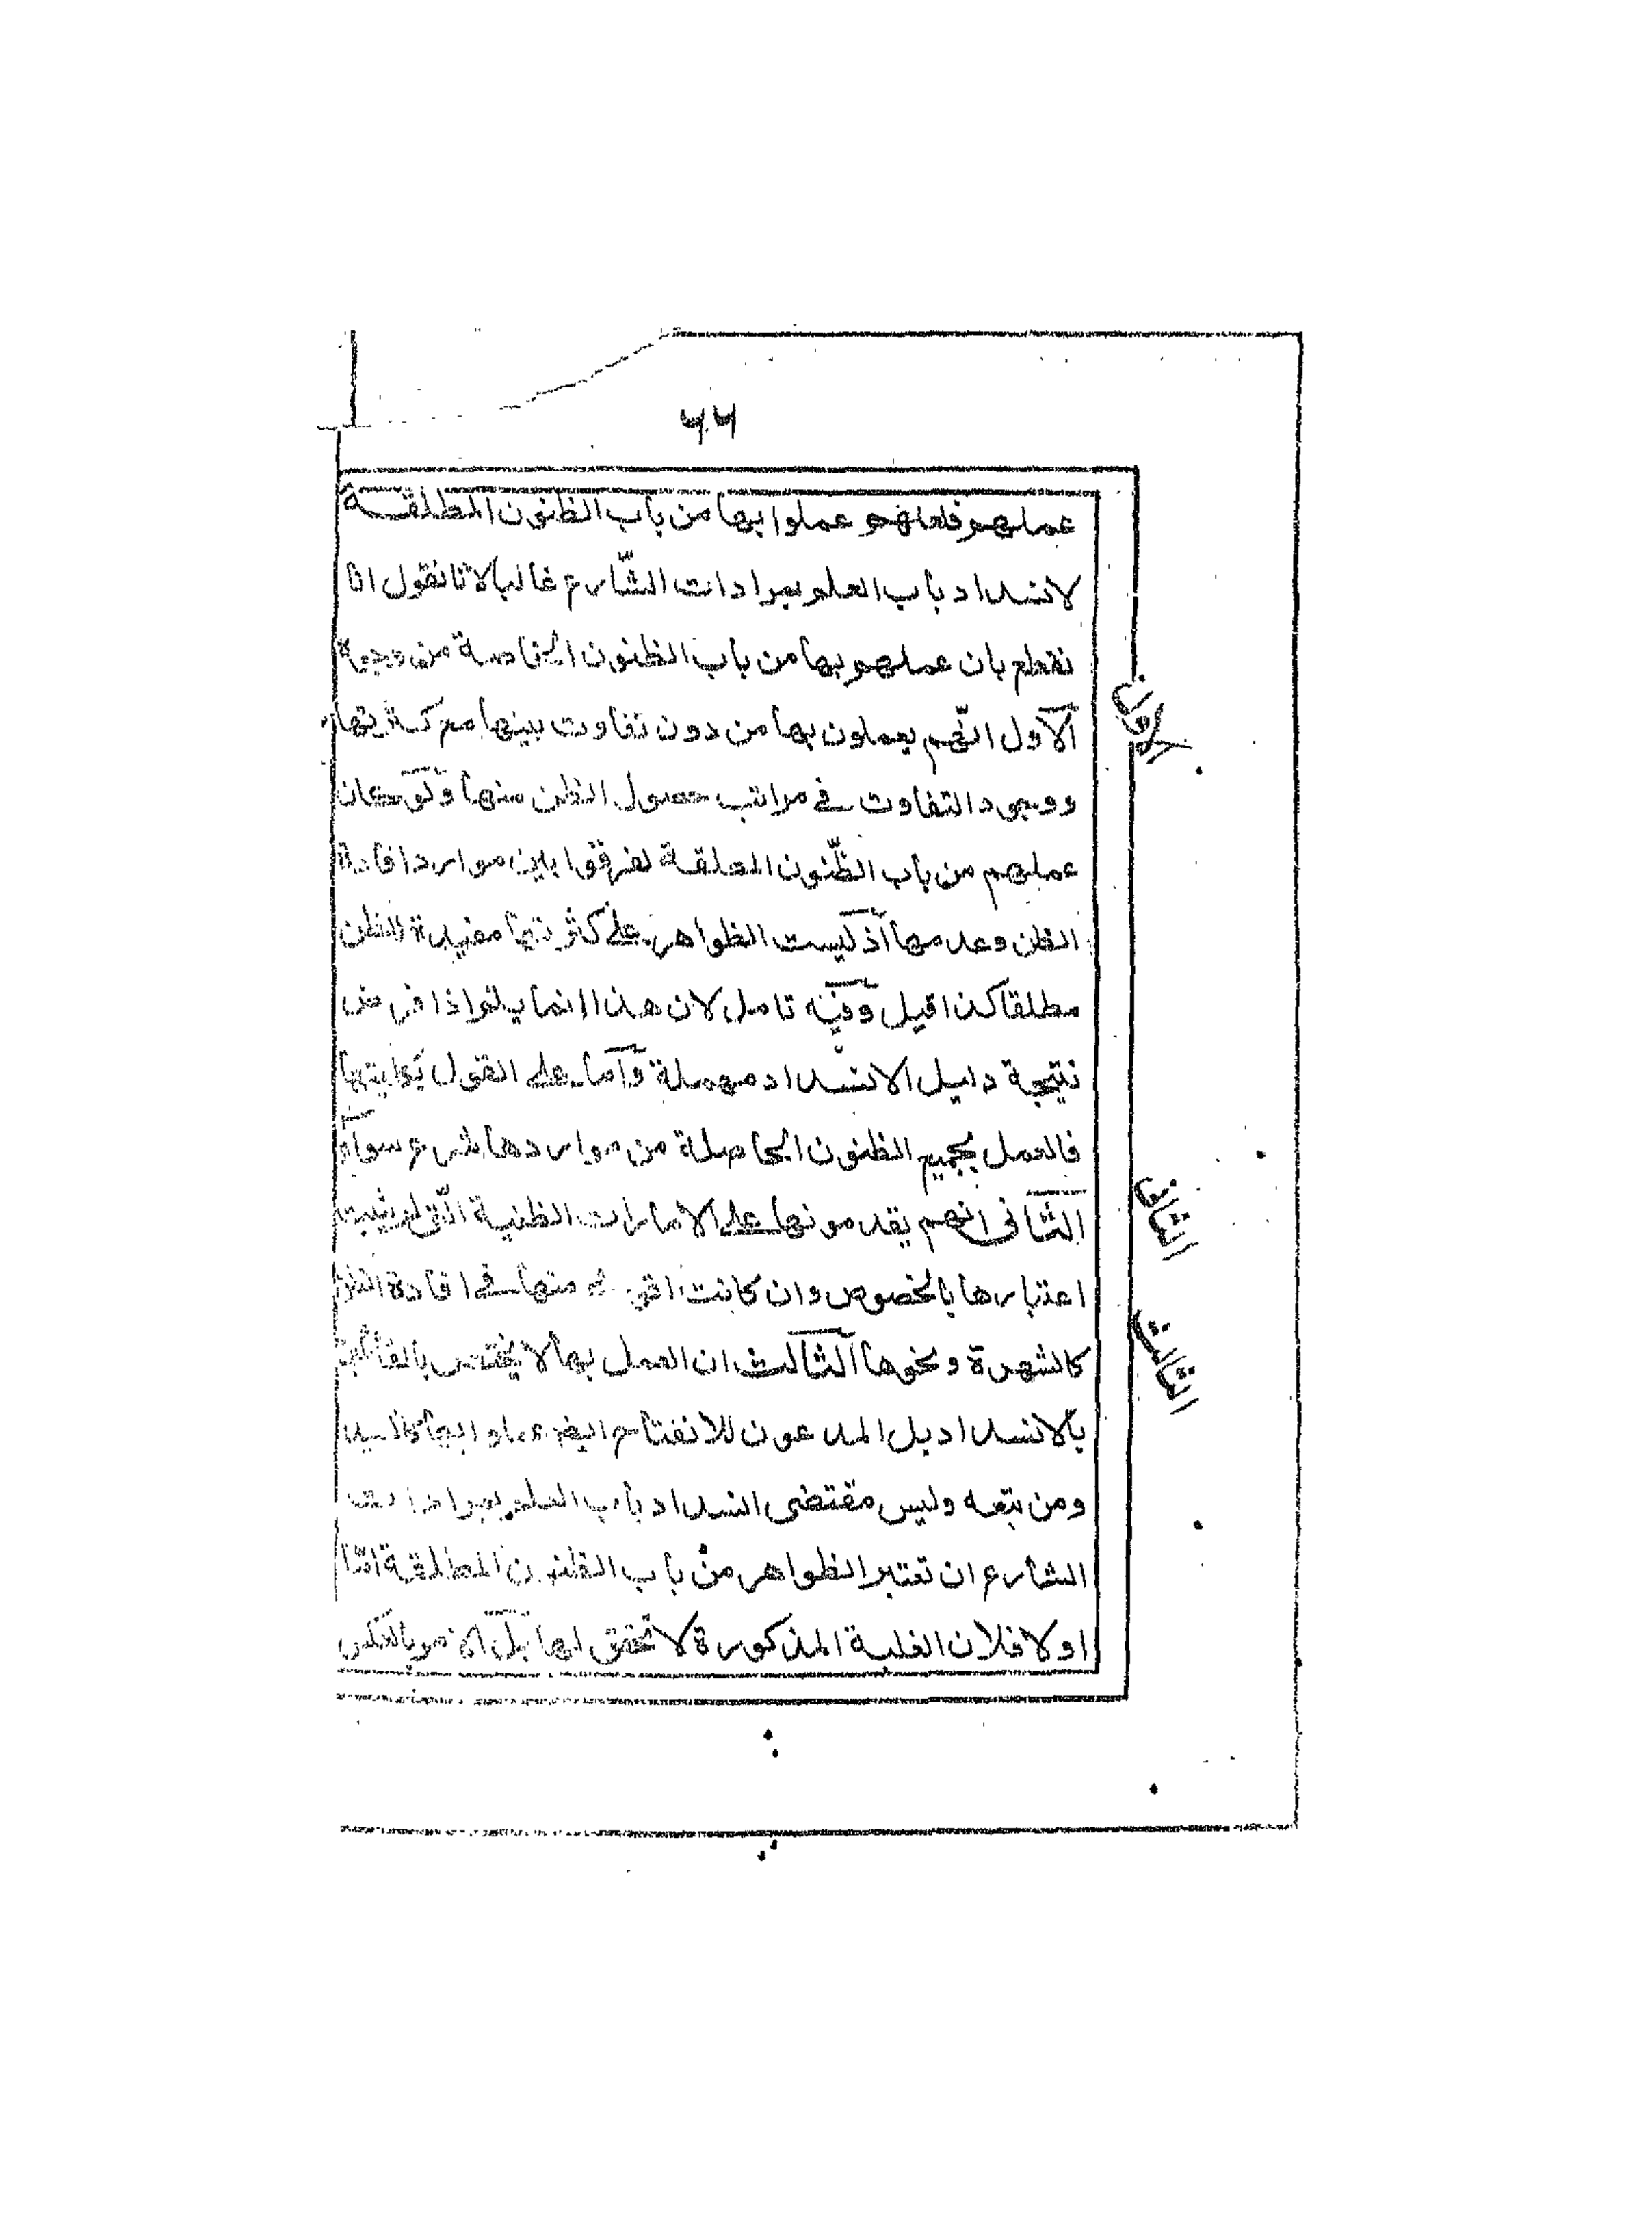 ٦٦
عملهم فلعلهم عملوا بها من باب الظنون المطلقة
لانسداد باب العلم بمرادات الشّارع غالبا لانا نقول انا
نقطع بان عملهم بها من باب الظنون الخاصة من وجوه
الأول انّهم يعملون بها من دون تفاوت بينها مع كثرتها
ووجود التفاوت في مراتب حصول الظن منها ولو كان
عملهم من باب الظّنون المطلقة لفرقوا بين موارد افادة
الظن وعدمها اذ ليست الظواهر على كثرتها مفيدة للظن
مطلقا كذا قيل وفيه تامل لان هذا انما يتم اذا فرض
نتيجة دليل الانسداد مهملة واما على القول بكليتها
فالعمل بجميع الظنون الحاصلة من مواردها شرع سواء
الثانى انهم يقدمونها على الامارات الظنية الّتى لم يثبت
اعتبارها بالخصوص وان كانت اقوى منها في افادة الظن
كالشهرة ونحوها الثالث ان العمل بها لا يختص بالقائلين
بالانسداد بل المدعون للانفتاح ايضا عملوا بها كالسيد
ومن تبعه وليس مقتضى انسداد باب العلم بمرادات
الشارع ان تعتبر الظواهر من باب الظنون المطلقة امّا
اولا فلان الغلبة المذكورة لا تحقق لها بل الامر بالعكس
الاول
الثانى
الثالث